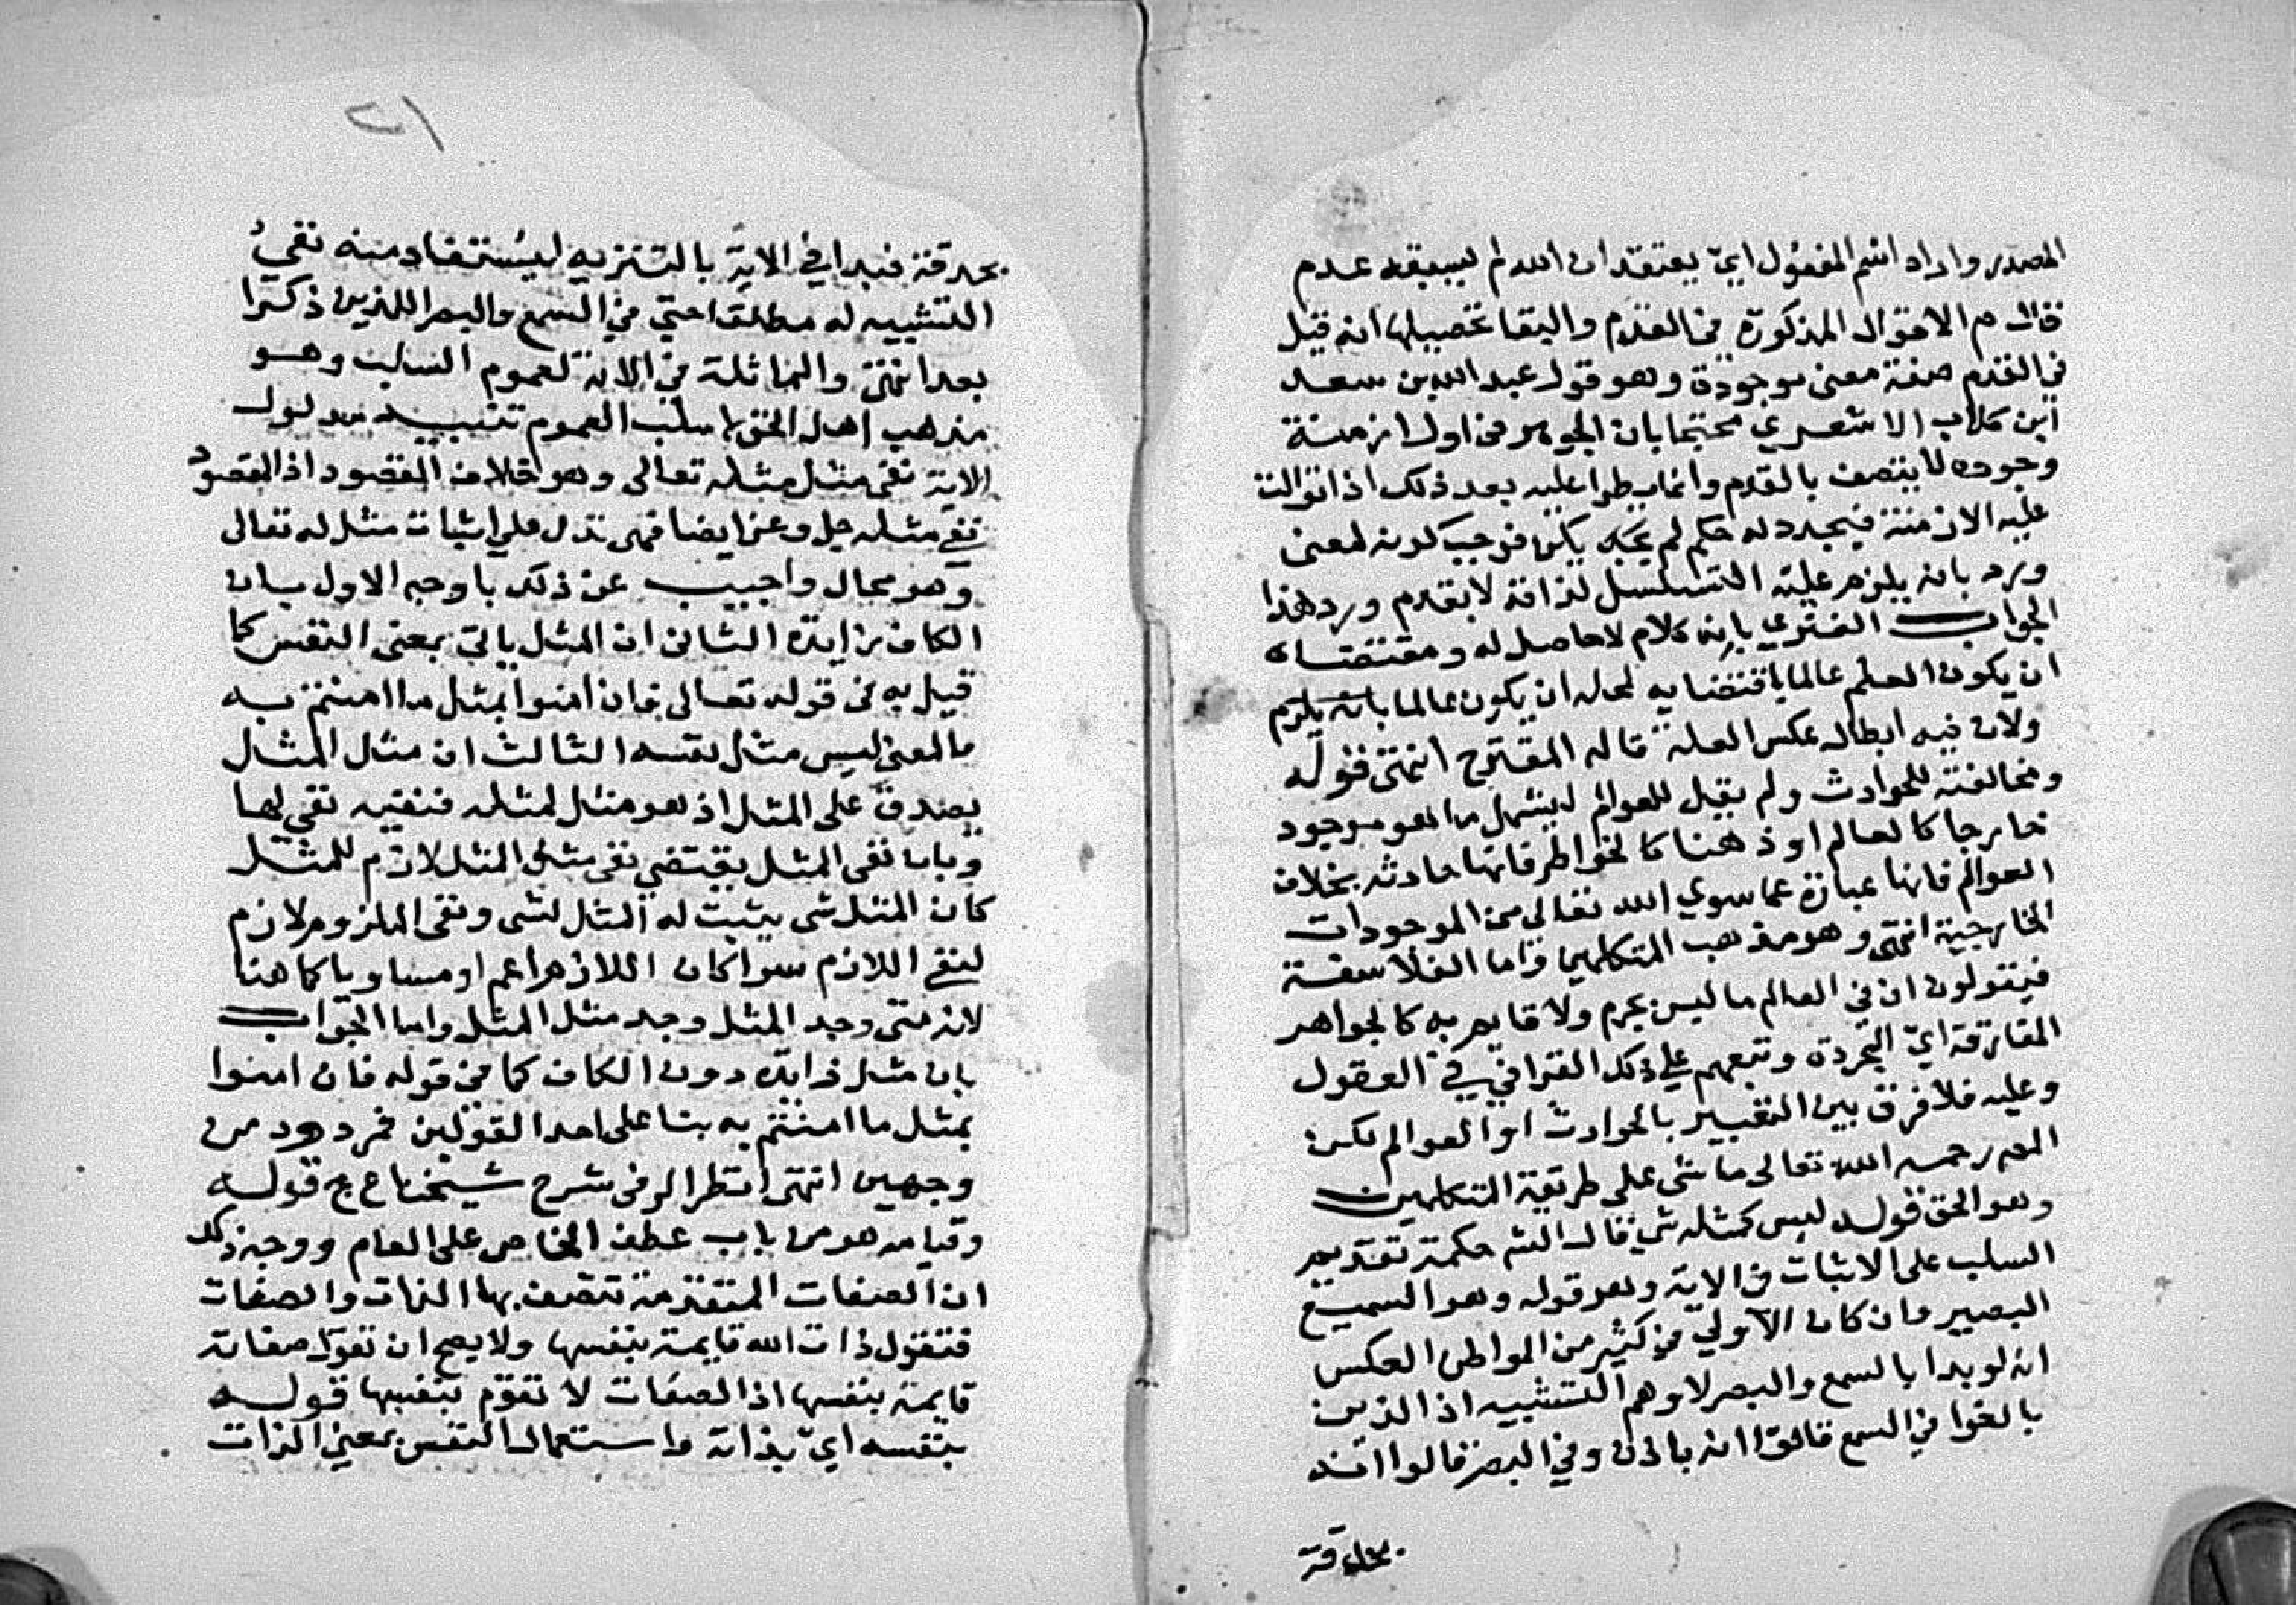 المصدر واراد اسم المفعول اي يعتقد ان الله لم يسبقه عدم
قال م الاقوال المذكورة في القدم والبقا تحصيلها انه قيل
في القدم صفة معنى موجودة وهو قول عبد الله بن سعد
ابن كلاب الاشعري محتجا بان الجوهر في اول ازمنة
وجوده لا يتصف بالقدم وانما يطرا عليه بعد ذلك اذا توالت
عليه الازمنة فيجدد له حكم لم يكن فوجب كونه لمعنى
ورد بانه يلزم عليه التسلسل لذاته لا بقدم ورد هذا
الجواب الفهري بانه كلام لا حاصل له ومقتضاه
ان يكون العلم عالما باقتضايه لمحله ان يكون عالما بانه يلزم
ولان فيه ابطال عكس العلة قاله المقترح انتهى قوله
ومخالفته للحوادث ولم يقل للعوالم ليشمل ما هو موجود
خارجا كالعالم او ذهنا كالخواطر فانها حادثه بخلاف
العوالم فانها عبارة عما سوي الله تعالى من الموجودات
الخارجية انتهى وهو مذهب المتكلمين واما الفلاسفة
فيقولون ان في العالم ما ليس بجرم ولا قايم به كالجواهر
المفارقة اي المجردة وتبعهم علي ذلك القرافي في العقول
وعليه فلا فرق بين التعبير بالحوادث او العوالم لكن
المص رحمه الله تعالى ماشى على طريقة المتكلمين
وهو الحق قوله ليس كمثله شي قال الشم حكمة تقديم
السلب على الاثبات في الاية وهو قوله وهو السميع
البصير وان كان الاولي في كثير من المواطن العكس
انه لو بدا بالسمع والبصر لاوهم التشبيه اذ الذين
بالغوا في السمع قالوا انه باذن وفي البصر قالوا انه
بحدقة
٢١
بحدقة فبدا في الاية بالتنزيه ليستفاد منه نفي
التشبيه له مطلقا حتي في السمع والبصر اللذين ذكرا
بعد انتهى والمماثلة في الاية لعموم السلب وهو
مذهب اهل الحق لا سلب العموم تنبيه مدلول
الاية نفى مثل مثله تعالى وهو خلاف المقصود اذ المقصود
نفي مثله جل وعز ايضا فهي تدل علي اثبات مثل له تعالى
وهو محال واجيب عن ذلك باوجه الاول بان
الكاف زايدة الثاني ان المثل ياتي بمعنى النفس كما
قيل به في قوله تعالى فان امنوا بمثل ما امنتم به
فالمعنى ليس مثل نفسه الثالث ان مثل المثل
يصدق على المثل اذ هو مثل لمثله فنفيه نفي لها
وبان نفى المثل يقتضي نفى مثل المثل لازم للمثل
كان المثل شى يثبت له المثل لشى ونفى الملزوم لازم
لنفي اللازم سوا كان اللازم اعم او مساويا كما هنا
لانه متى وجد المثل وجد مثل المثل واما الجواب
بان مثل زايدة دون الكاف كما في قوله فان امنوا
بمثل ما امنتم به بنا على احد القولين فمردود من
وجهين انتهى انظرا لوفى شرح شيخنا ع ج قوله
وقيامه هو من باب عطف الخاص على العام ووجه ذلك
ان الصفات المتقدمة تتصف بها الذات والصفات
فتقول ذات الله قايمة بنفسها ولا يصح ان تقول صفاته
قايمة بنفسها اذ الصفات لا تقوم بنفسها قوله
بنفسه اي بذاته واستعمال النفس بمعنى الذات